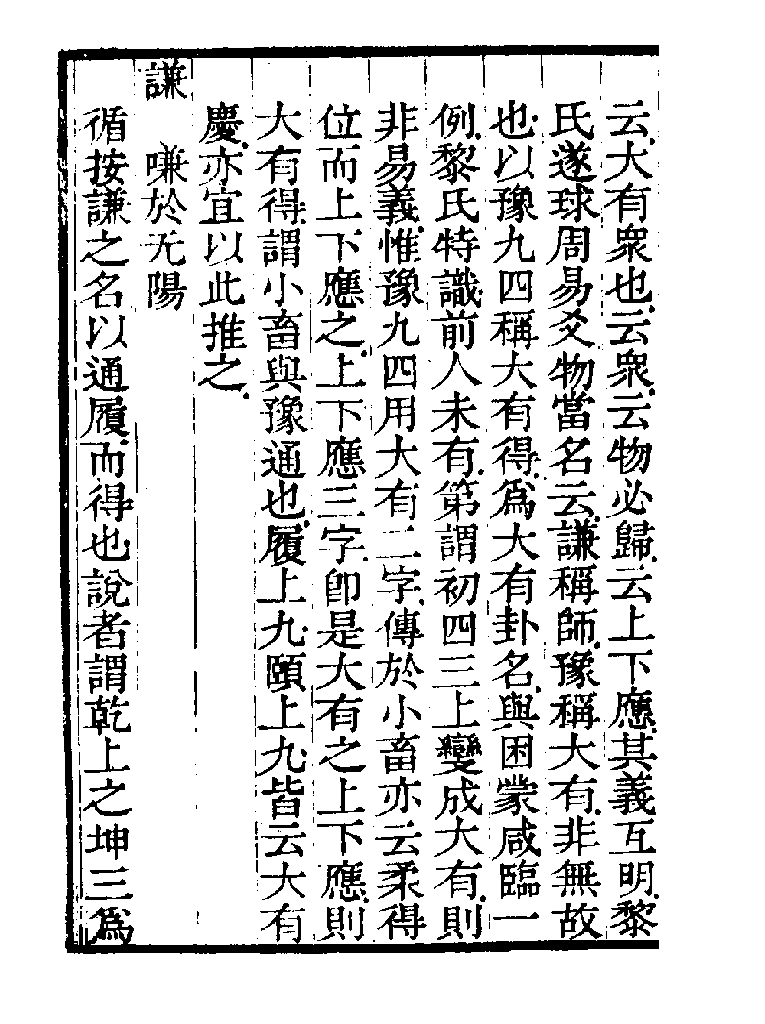 云大有衆也云衆云物必歸云上下應其義互明黎
氏遂球周易爻物當名云謙稱師豫稱大有非無故
也以豫九四稱大有得爲大有卦名與困蒙咸臨一
例黎氏特識前人未有第謂初四三上變成大有則
非易義惟豫九四用大有二字傳於小畜亦云柔得
位而上下應之上下應三字卽是大有之上下應則
大有得謂小畜與豫通也履上九頤上九皆云大有
慶亦宜以此推之
謙　嗛於无陽
循按謙之名以通履而得也說者謂乾上之坤三爲